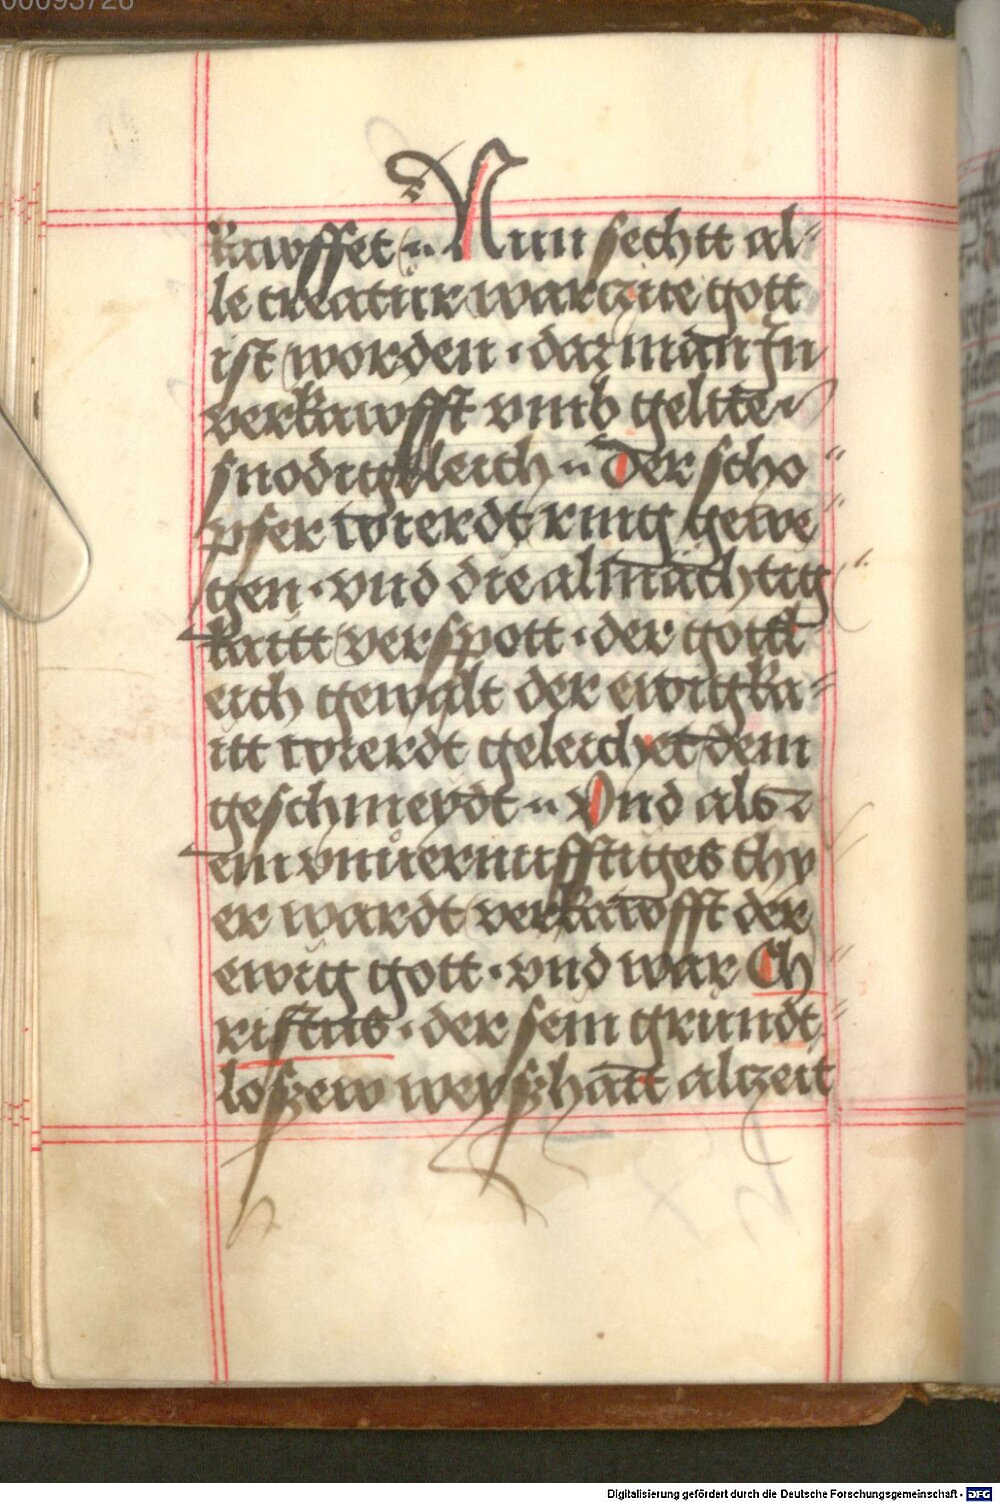 00093726
kawffet ·:· Nun sechtt al⸗
le creatur war czue gott
ist worden · daz man In
verkawfft vmb geltte
snodigkleich ·:· der scho⸗
pfer wierdt ring gewe⸗
gen · vnd die almächtig
kaitt verspott · der gottl
eich gewalt der ewigka⸗
itt wierdt geleichet dem
geschmeydt ·:· Vnd als
ein vnuernufftiges thy
er wardt verkawfft der
ewig gott · vnd war Ch⸗
ristus · der sein grundt⸗
loszew weyszhatt alczeit
Digitalisierung gefördert durch die Deutsche Forschungsgemeinschaft - DFG